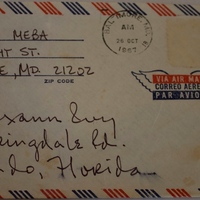 MEBA
HT ST.
E, MD. 21202
ZIP CODE
BALTIMORE, MD.
AM
26 OCT
1967
VIA AIR MAIL
CORREO AEREO
PAR AVION
oxann
ringdale Rd.
ndo, Florida